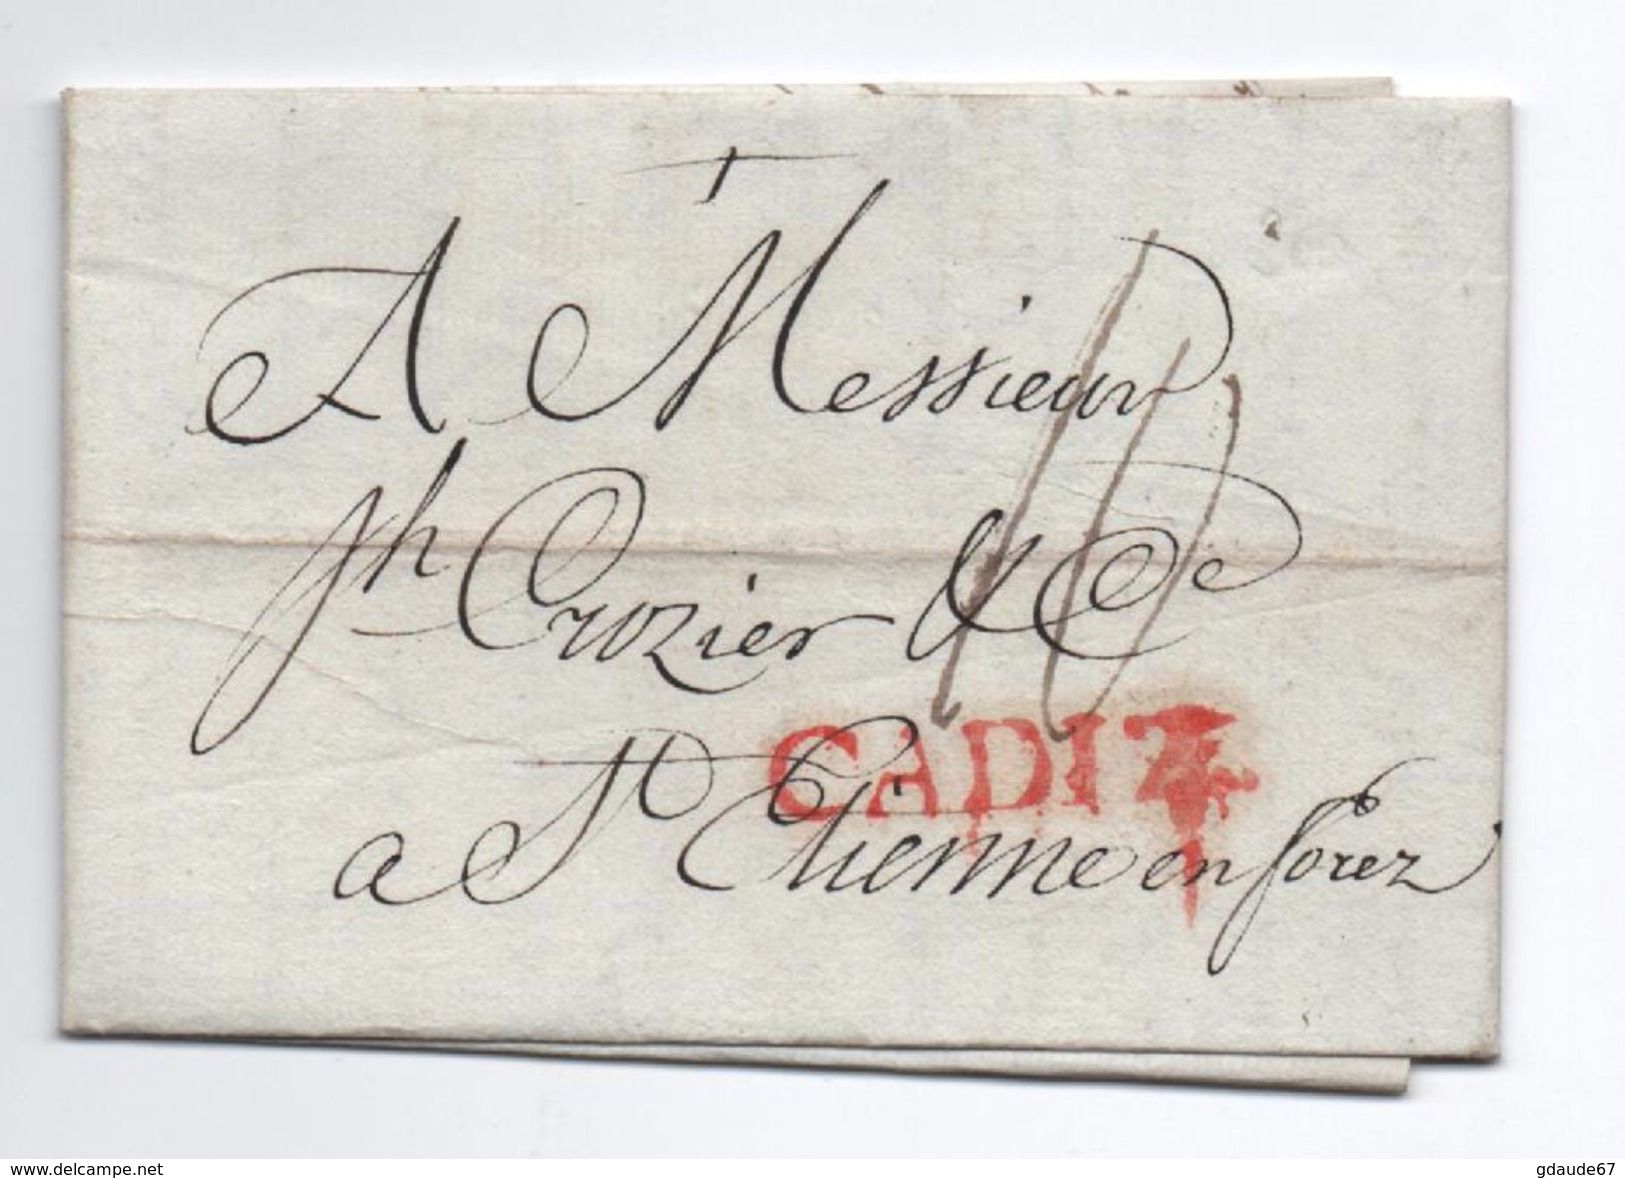 A Messieur
Jh Crozier & Ce
CADIZ
a St Etienne en forez
www.delcampe.net
gdaude67